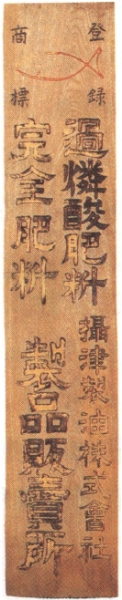 登録
商標
過燐酸肥料
攝津製油株式會社
完全肥料
製品販賣所